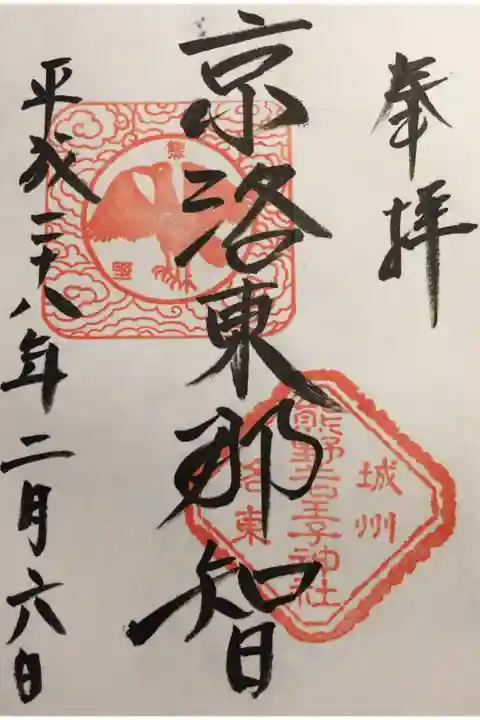 奉拝
城州
熊野若王子神社
洛東
京洛東那智
熊
野
平成二十八年二月六日